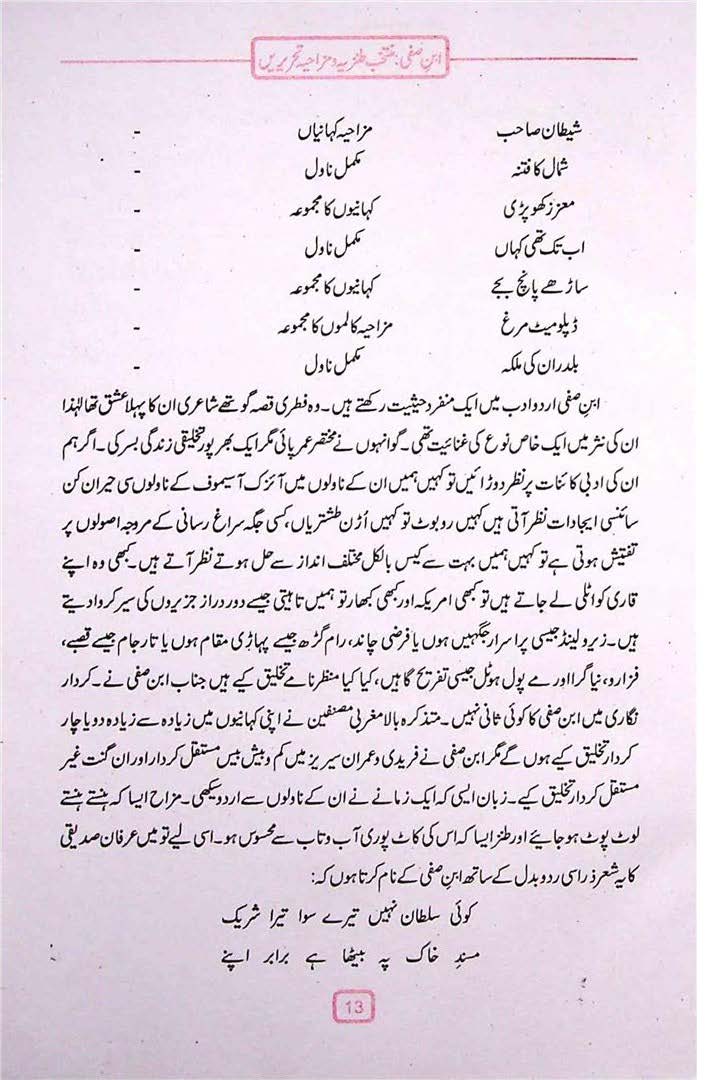 ابنِ صفی: منتخب طنزیہ و مزاحیہ تحریریں
شیطان صاحب مزاحیہ کہانیاں -
شمال کا فتنہ مکمل ناول -
معزز کھوپڑی کہانیوں کا مجموعہ -
اب تک تھی کہاں مکمل ناول -
ساڑھے پانچ بجے کہانیوں کا مجموعہ -
ڈپلومیٹ مرغ مزاحیہ کالموں کا مجموعہ -
بلدران کی ملکہ مکمل ناول -
ابنِ صفی اردو ادب میں ایک منفرد حیثیت رکھتے ہیں۔ وہ فطری قصہ گو تھے شاعری ان کا پہلا عشق تھا لہٰذا
ان کی نثر میں ایک خاص نوع کی غنائیت تھی۔ گو انہوں نے مختصر عمر پائی مگر ایک بھرپور تخلیقی زندگی بسر کی۔ اگر ہم
ان کی ادبی کائنات پر نظر دوڑائیں تو کہیں ہمیں ان کے ناولوں میں آئزک آسیموف کے ناولوں سی حیران کن
سائنسی ایجادات نظر آتی ہیں کہیں روبوٹ تو کہیں اُڑن طشتریاں، کسی جگہ سراغ رسانی کے مروجہ اصولوں پر
تفتیش ہوتی ہے تو کہیں ہمیں بہت سے کیس بالکل مختلف انداز سے حل ہوتے نظر آتے ہیں۔ کبھی وہ اپنے
قاری کو اٹلی لے جاتے ہیں تو کبھی امریکہ اور کبھی کبھار تو ہمیں تاہیتی جیسے دور دراز جزیروں کی سیر کروا دیتے
ہیں۔ زیرو لینڈ جیسی پراسرار جگہیں ہوں یا فرضی چاند، رام گڑھ جیسے پہاڑی مقام ہوں یا تار جام جیسے قصبے،
فزارو، نیاگرا اور مے پول ہوٹل جیسی تفریح گاہیں، کیا کیا منظرنامے تخلیق کیے ہیں جناب ابن صفی نے۔ کردار
نگاری میں ابن صفی کا کوئی ثانی نہیں۔ متذکرہ بالا مغربی مصنفین نے اپنی کہانیوں میں زیادہ سے زیادہ دو یا چار
کردار تخلیق کیے ہوں گے مگر ابن صفی نے فریدی و عمران سیریز میں کم و بیش بیس مستقل کردار اور ان گنت غیر
مستقل کردار تخلیق کیے۔ زبان ایسی کہ ایک زمانے نے ان کے ناولوں سے اردو سیکھی۔ مزاح ایسا کہ ہنستے ہنستے
لوٹ پوٹ ہو جائیے اور طنز ایسا کہ اس کی کاٹ پوری آب و تاب سے محسوس ہو۔ اسی لیے تو میں عرفان صدیقی
کا یہ شعر ذرا سی ردوبدل کے ساتھ ابنِ صفی کے نام کرتا ہوں کہ:
کوئی سلطان نہیں تیرے سوا تیرا شریک
مسندِ خاک پہ بیٹھا ہے برابر اپنے
13